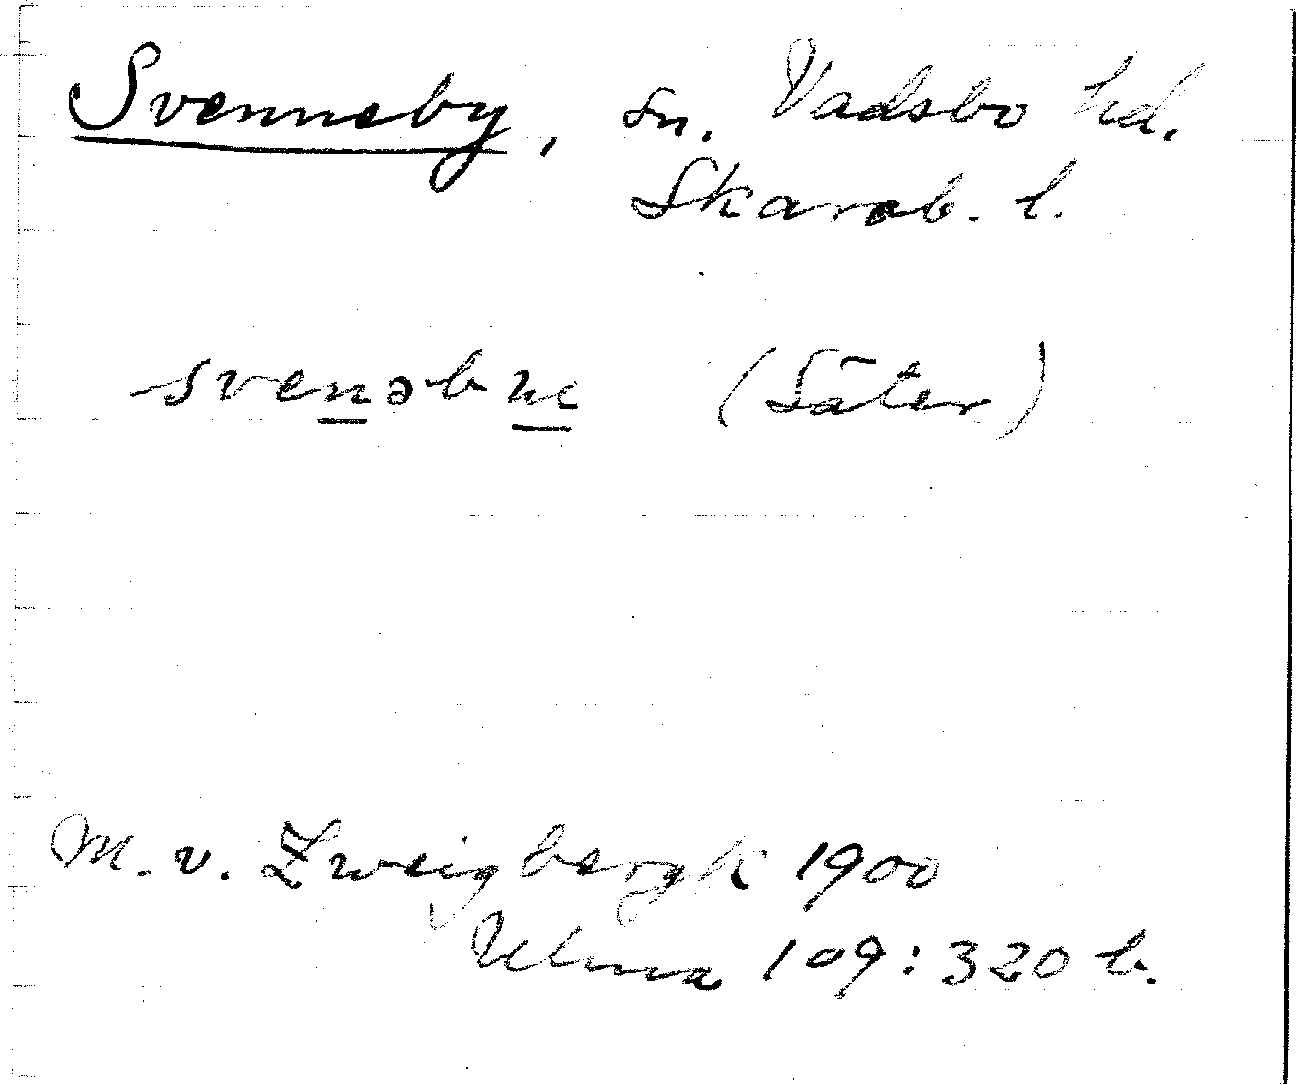 Svenneby, sn. Vadsbo hd.
Skarab. l.
svenəbы (Säter)
M. v. Zweigbergk 1900
Ulma 109:320 b.